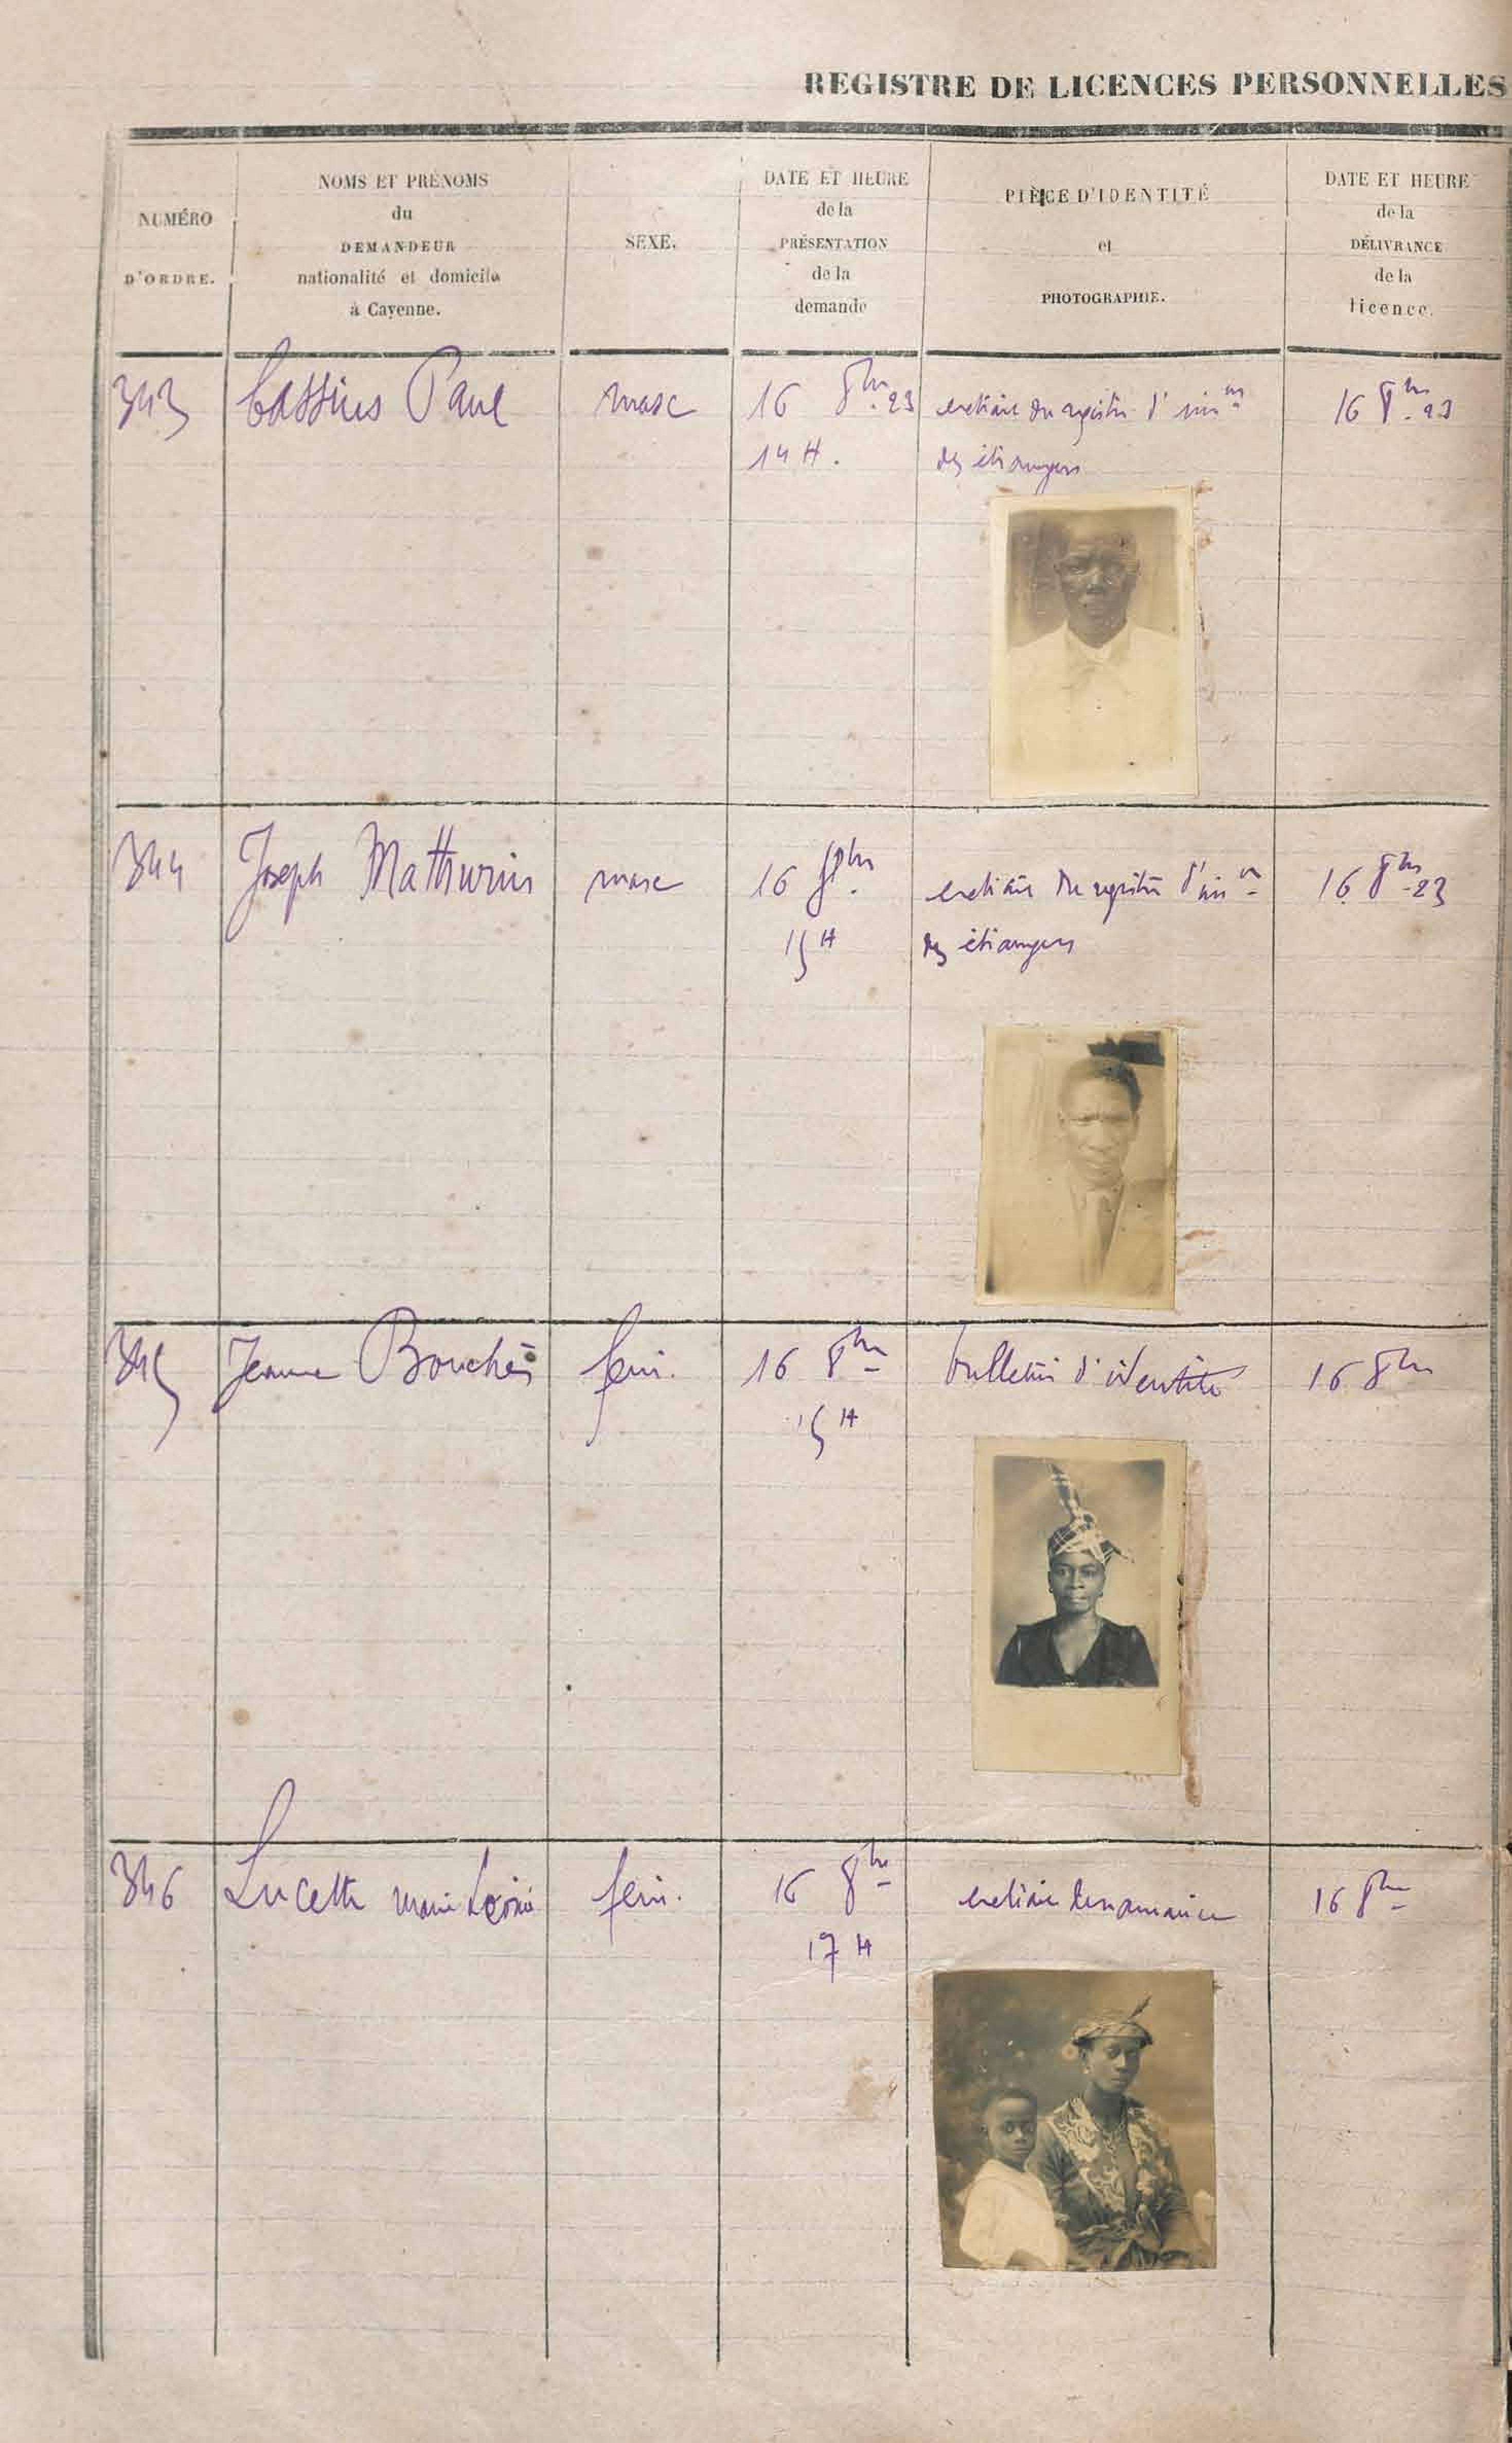 REGISTRE DE LICENCES PERSONNELLES
NUMÉRO
D'ORDRE.
NOMS ET PRÉNOMS
du
DEMANDEUR
nationalité et domicile
à Cayenne.
SEXE.
DATE ET HEURE
de la
PRÉSENTATION
de la
demande
PIÈCE D'IDENTITÉ
et
PHOTOGRAPHIE.
DATE ET HEURE
de la
DÉLIVRANCE
de la
licence.
343 Cassius Paul masc 16 8bre 23 extrait du registre d'im on 16 8bre 23
14 H. des étrangers
344 Joseph Mathurin masc 16 8bre extrait du registre d'im on 16 8bre 23
15 H des étrangers
345 Jeanne Bouchés fem. 16 8bre bulletin d'identité 16 8bre
15 H
346 Lucette Marie fem. 16 8bre extrait de naissance 16 8bre
17 H